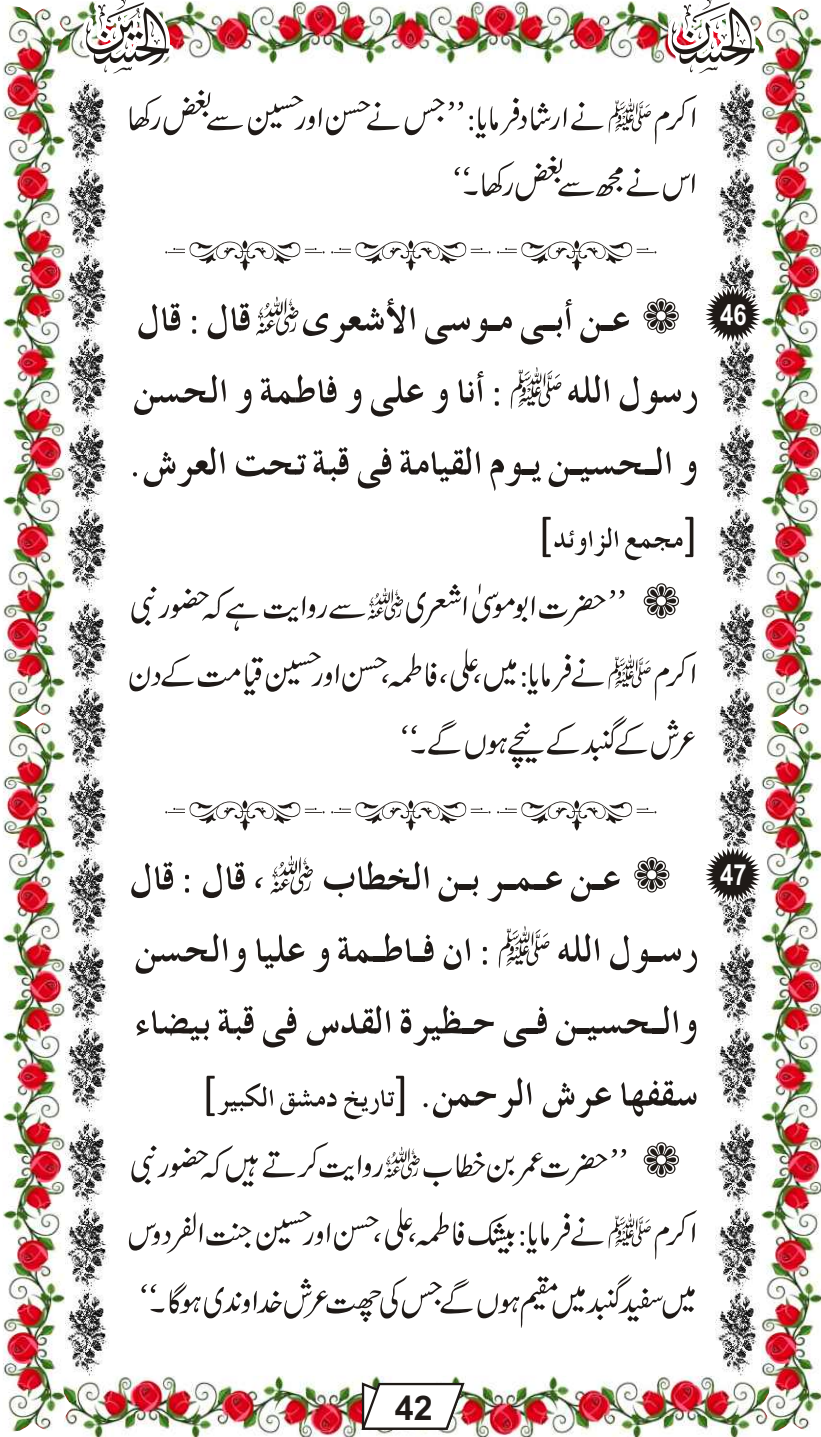 الحسنین الحسنین
اکرم ﷺ نے ارشاد فرمایا: ’’جس نے حسن اور حسین سے بغض رکھا
اس نے مجھ سے بغض رکھا۔‘‘
46 عن أبی موسی الأشعری رضی اللہ عنہ قال : قال
رسول الله ﷺ : أنا و علی و فاطمة و الحسن
و الحسین یوم القیامة فی قبة تحت العرش .
[مجمع الزاوئد]
’’حضرت ابوموسیٰ اشعری رضی اللہ عنہ سے روایت ہے کہ حضور نبی
اکرم ﷺ نے فرمایا: میں، علی، فاطمہ، حسن اور حسین قیامت کے دن
عرش کے گنبد کے نیچے ہوں گے۔‘‘
47 عن عمر بن الخطاب رضی اللہ عنہ ، قال : قال
رسول الله ﷺ : ان فاطمة و علیا والحسن
والحسین فی حظیرة القدس فی قبة بیضاء
سقفها عرش الرحمن . [تاریخ دمشق الکبیر]
’’حضرت عمر بن خطاب رضی اللہ عنہ روایت کرتے ہیں کہ حضور نبی
اکرم ﷺ نے فرمایا: بیشک فاطمہ، علی، حسن اور حسین جنت الفردوس
میں سفید گنبد میں مقیم ہوں گے جس کی چھت عرش خداوندی ہوگا۔‘‘
42